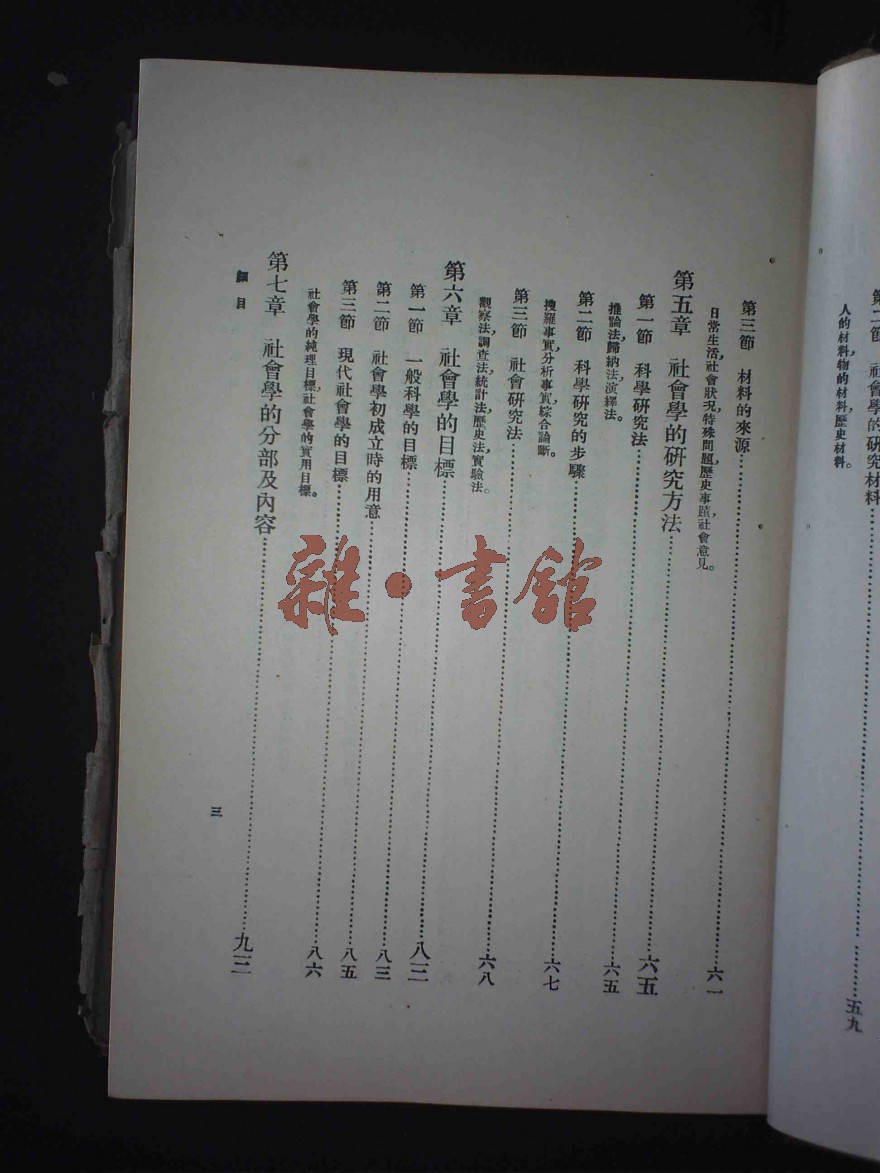 第二節 社會學的研究材料……五九
人的材料，物的材料，歷史材料。
第三節 材料的來源……六一
日常生活，社會狀況，特殊問題，歷史事蹟，社會意見。
第五章 社會學的研究方法……六五
第一節 科學研究法……六五
推論法，歸納法，演繹法。
第二節 科學研究的步驟……六七
搜羅事實，分析事實，綜合論斷。
第三節 社會研究法……六八
觀察法，調查法，統計法，歷史法，實驗法。
第六章 社會學的目標……八三
第一節 一般科學的目標……八三
第二節 社會學初成立時的用意……八五
第三節 現代社會學的目標……八六
社會學的純理目標，社會學的實用目標。
第七章 社會學的分部及內容……九三
細目
三
雜·書館